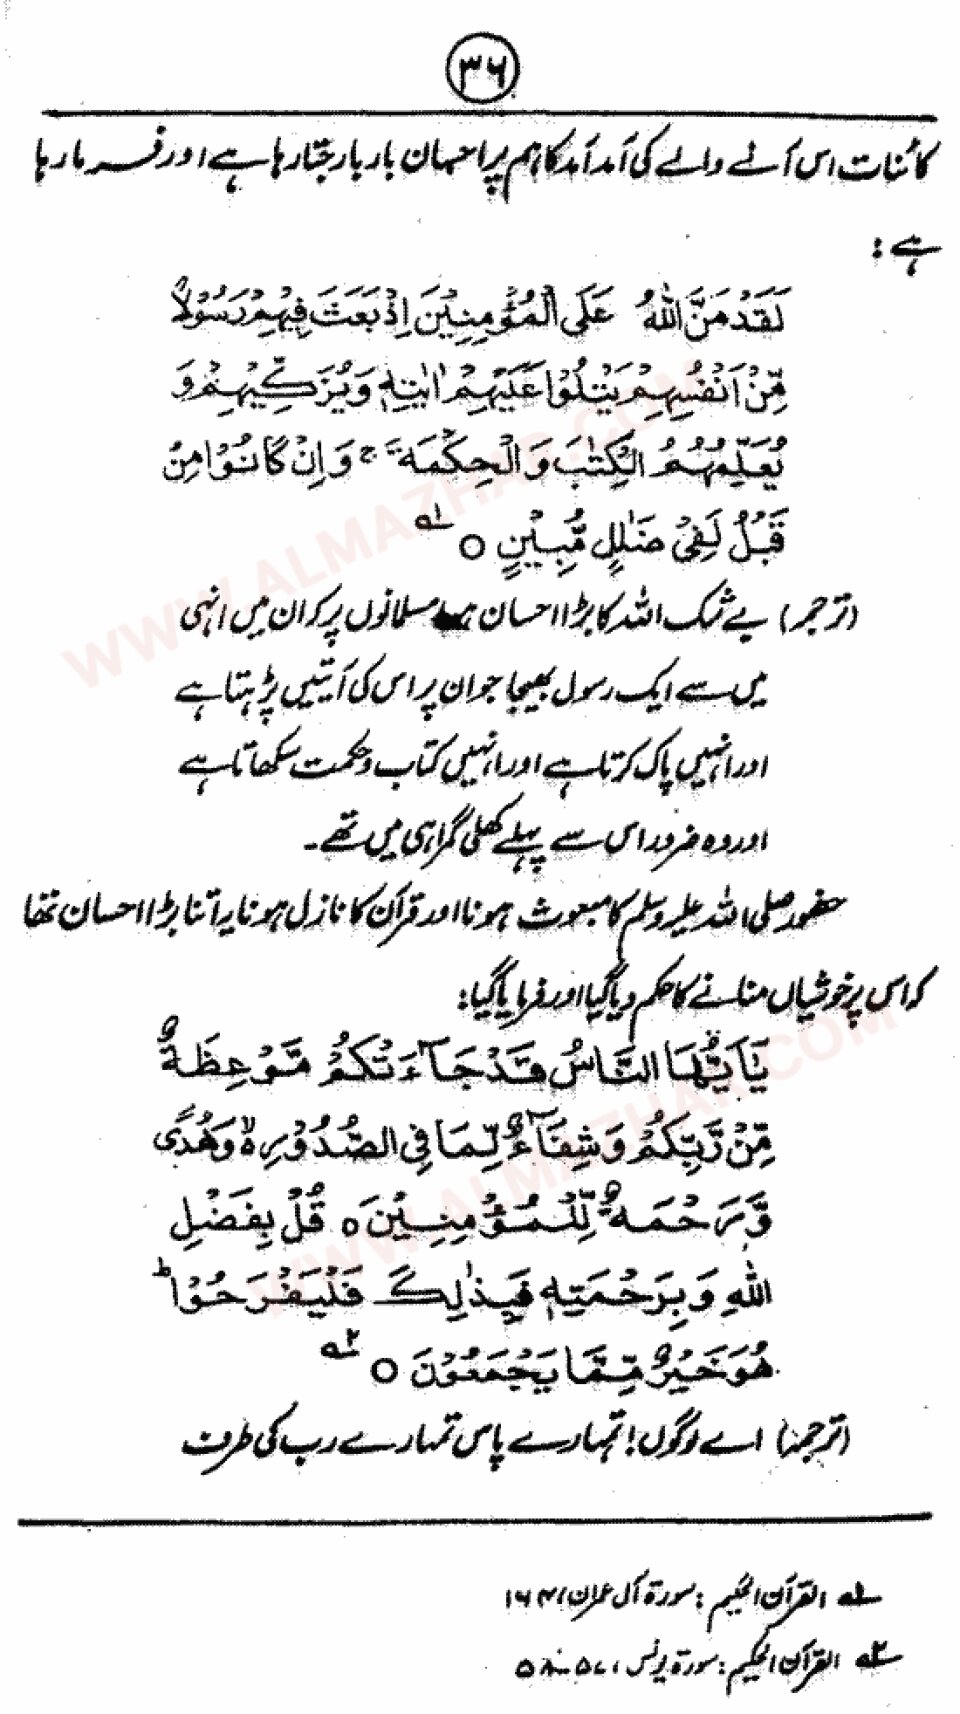 ۳۶
کائنات اس آنے والے کی آمد آمد کا ہم پر احسان بار بار جتا رہا ہے اور فرما رہا
ہے :
لَقَدْ مَنَّ اللّٰهُ عَلَى الْمُؤْمِنِيْنَ اِذْ بَعَثَ فِيْهِمْ رَسُوْلًا
مِّنْ اَنْفُسِهِمْ يَتْلُوْا عَلَيْهِمْ اٰيٰتِهٖ وَيُزَكِّيْهِمْ وَ
يُعَلِّمُهُمُ الْكِتٰبَ وَالْحِكْمَةَ ۚ وَاِنْ كَانُوْا مِنْ
قَبْلُ لَفِيْ ضَلٰلٍ مُّبِيْنٍ ○ ؎۱
(ترجمہ) بے شک اللہ کا بڑا احسان ہے مسلمانوں پر کہ ان میں انہی
میں سے ایک رسول بھیجا جو ان پر اس کی آیتیں پڑھتا ہے
اور انہیں پاک کرتا ہے اور انہیں کتاب و حکمت سکھاتا ہے
اور وہ ضرور اس سے پہلے کھلی گمراہی میں تھے۔
حضور صلی اللہ علیہ وسلم کا مبعوث ہونا اور قرآن کا نازل ہونا یہ اتنا بڑا احسان تھا
کہ اس پر خوشیاں منانے کا حکم دیا گیا اور فرمایا گیا :
يَا اَيُّهَا النَّاسُ قَدْ جَآءَتْكُمْ مَّوْعِظَةٌ
مِّنْ رَّبِّكُمْ وَشِفَآءٌ لِّمَا فِي الصُّدُوْرِ ۙ وَهُدًى
وَّرَحْمَةٌ لِّلْمُؤْمِنِيْنَ ○ قُلْ بِفَضْلِ
اللّٰهِ وَبِرَحْمَتِهٖ فَبِذٰلِكَ فَلْيَفْرَحُوْا ؕ
هُوَ خَيْرٌ مِّمَّا يَجْمَعُوْنَ ○ ؎۲
(ترجمہ) اے لوگوں! تمہارے پاس تمہارے رب کی طرف
؎۱ القرآن الحکیم : سورۃ آل عمران، ۱۶۴
؎۲ القرآن الحکیم : سورۃ یونس، ۵۷-۵۸
WWW.ALMAZHAR.COM
WWW.ALMAZHAR.COM